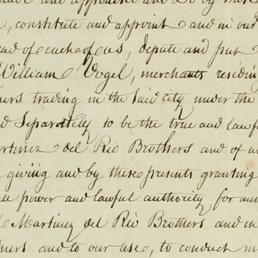 made and appointed and do by these
, constitute and appoint and in our
ead of each of us, depute and put
William Vogel, merchant residing
ners trading in the said city under the
d Separately to be the true and lawfu
artinez del Rio Brothers and of u
giving and by these presents granting
ll power and lawful authority, for and
Martinez del Rio Brothers and in
ners and to our use, to conduct m